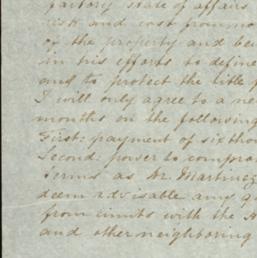 factory state of affairs
risk and cost from
of the property and be
in his efforts to define
and to protect the title
I will only agree to a ne
months on the following
First: payment of six thou
Second: power to compro
Terms as Dr Martinez
deem advisable any
from with the
and other neighboring